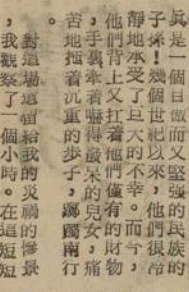 眞是一個自傲而又堅強的民族的
子孫！幾個世紀以來，他們很冷
靜地承受了巨大的不幸。而今，
他們背上又扛着他們僅有的財物
，手裏牽着嚇得發呆的兒女，痛
苦地拖着沉重的步子，蹣跚南行
。
對這場遺留給我的災禍的慘景
，我觀察了一個小時。在這短短